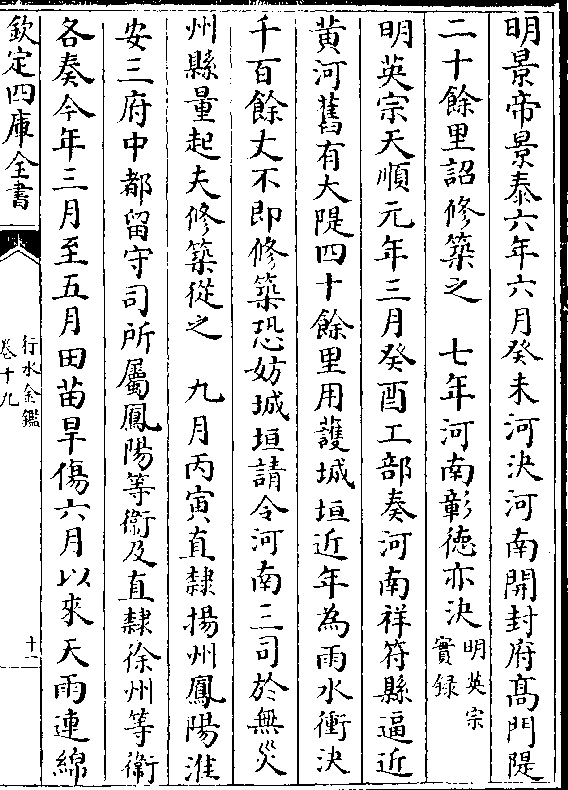 明景帝景泰六年六月癸未河決河南開封府髙門隄
二十餘里詔修築之　七年河南彰徳亦決明英宗實録
明英宗天順元年三月癸酉工部奏河南祥符縣逼近
黄河舊有大隄四十餘里用護城垣近年為雨水衝決
千百餘丈不即修築恐妨城垣請令河南三司於無災
州縣量起夫修築從之　九月丙寅直隷揚州鳳陽淮
安三府中都留守司所屬鳳陽等衛及直隷徐州等衛
各奏今年三月至五月田苗旱傷六月以來天雨連綿
欽定四庫全書
行水金鑑
卷十九
十一